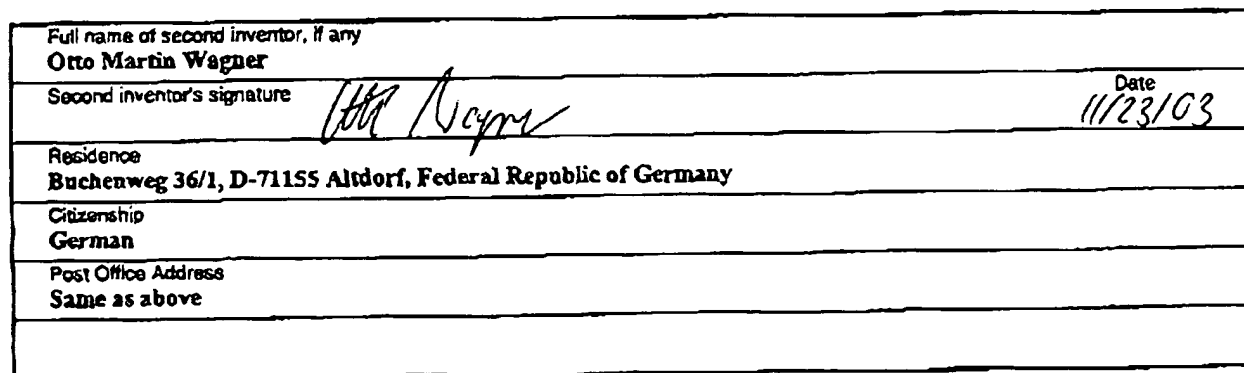 Full name of second inventor, if any
Otto Martin Wagner
Second inventor's signature Otto Wagner
Date
11/23/03
Residence
Buchenweg 36/1, D-71155 Altdorf, Federal Republic of Germany
Citizenship
German
Post Office Address
Same as above